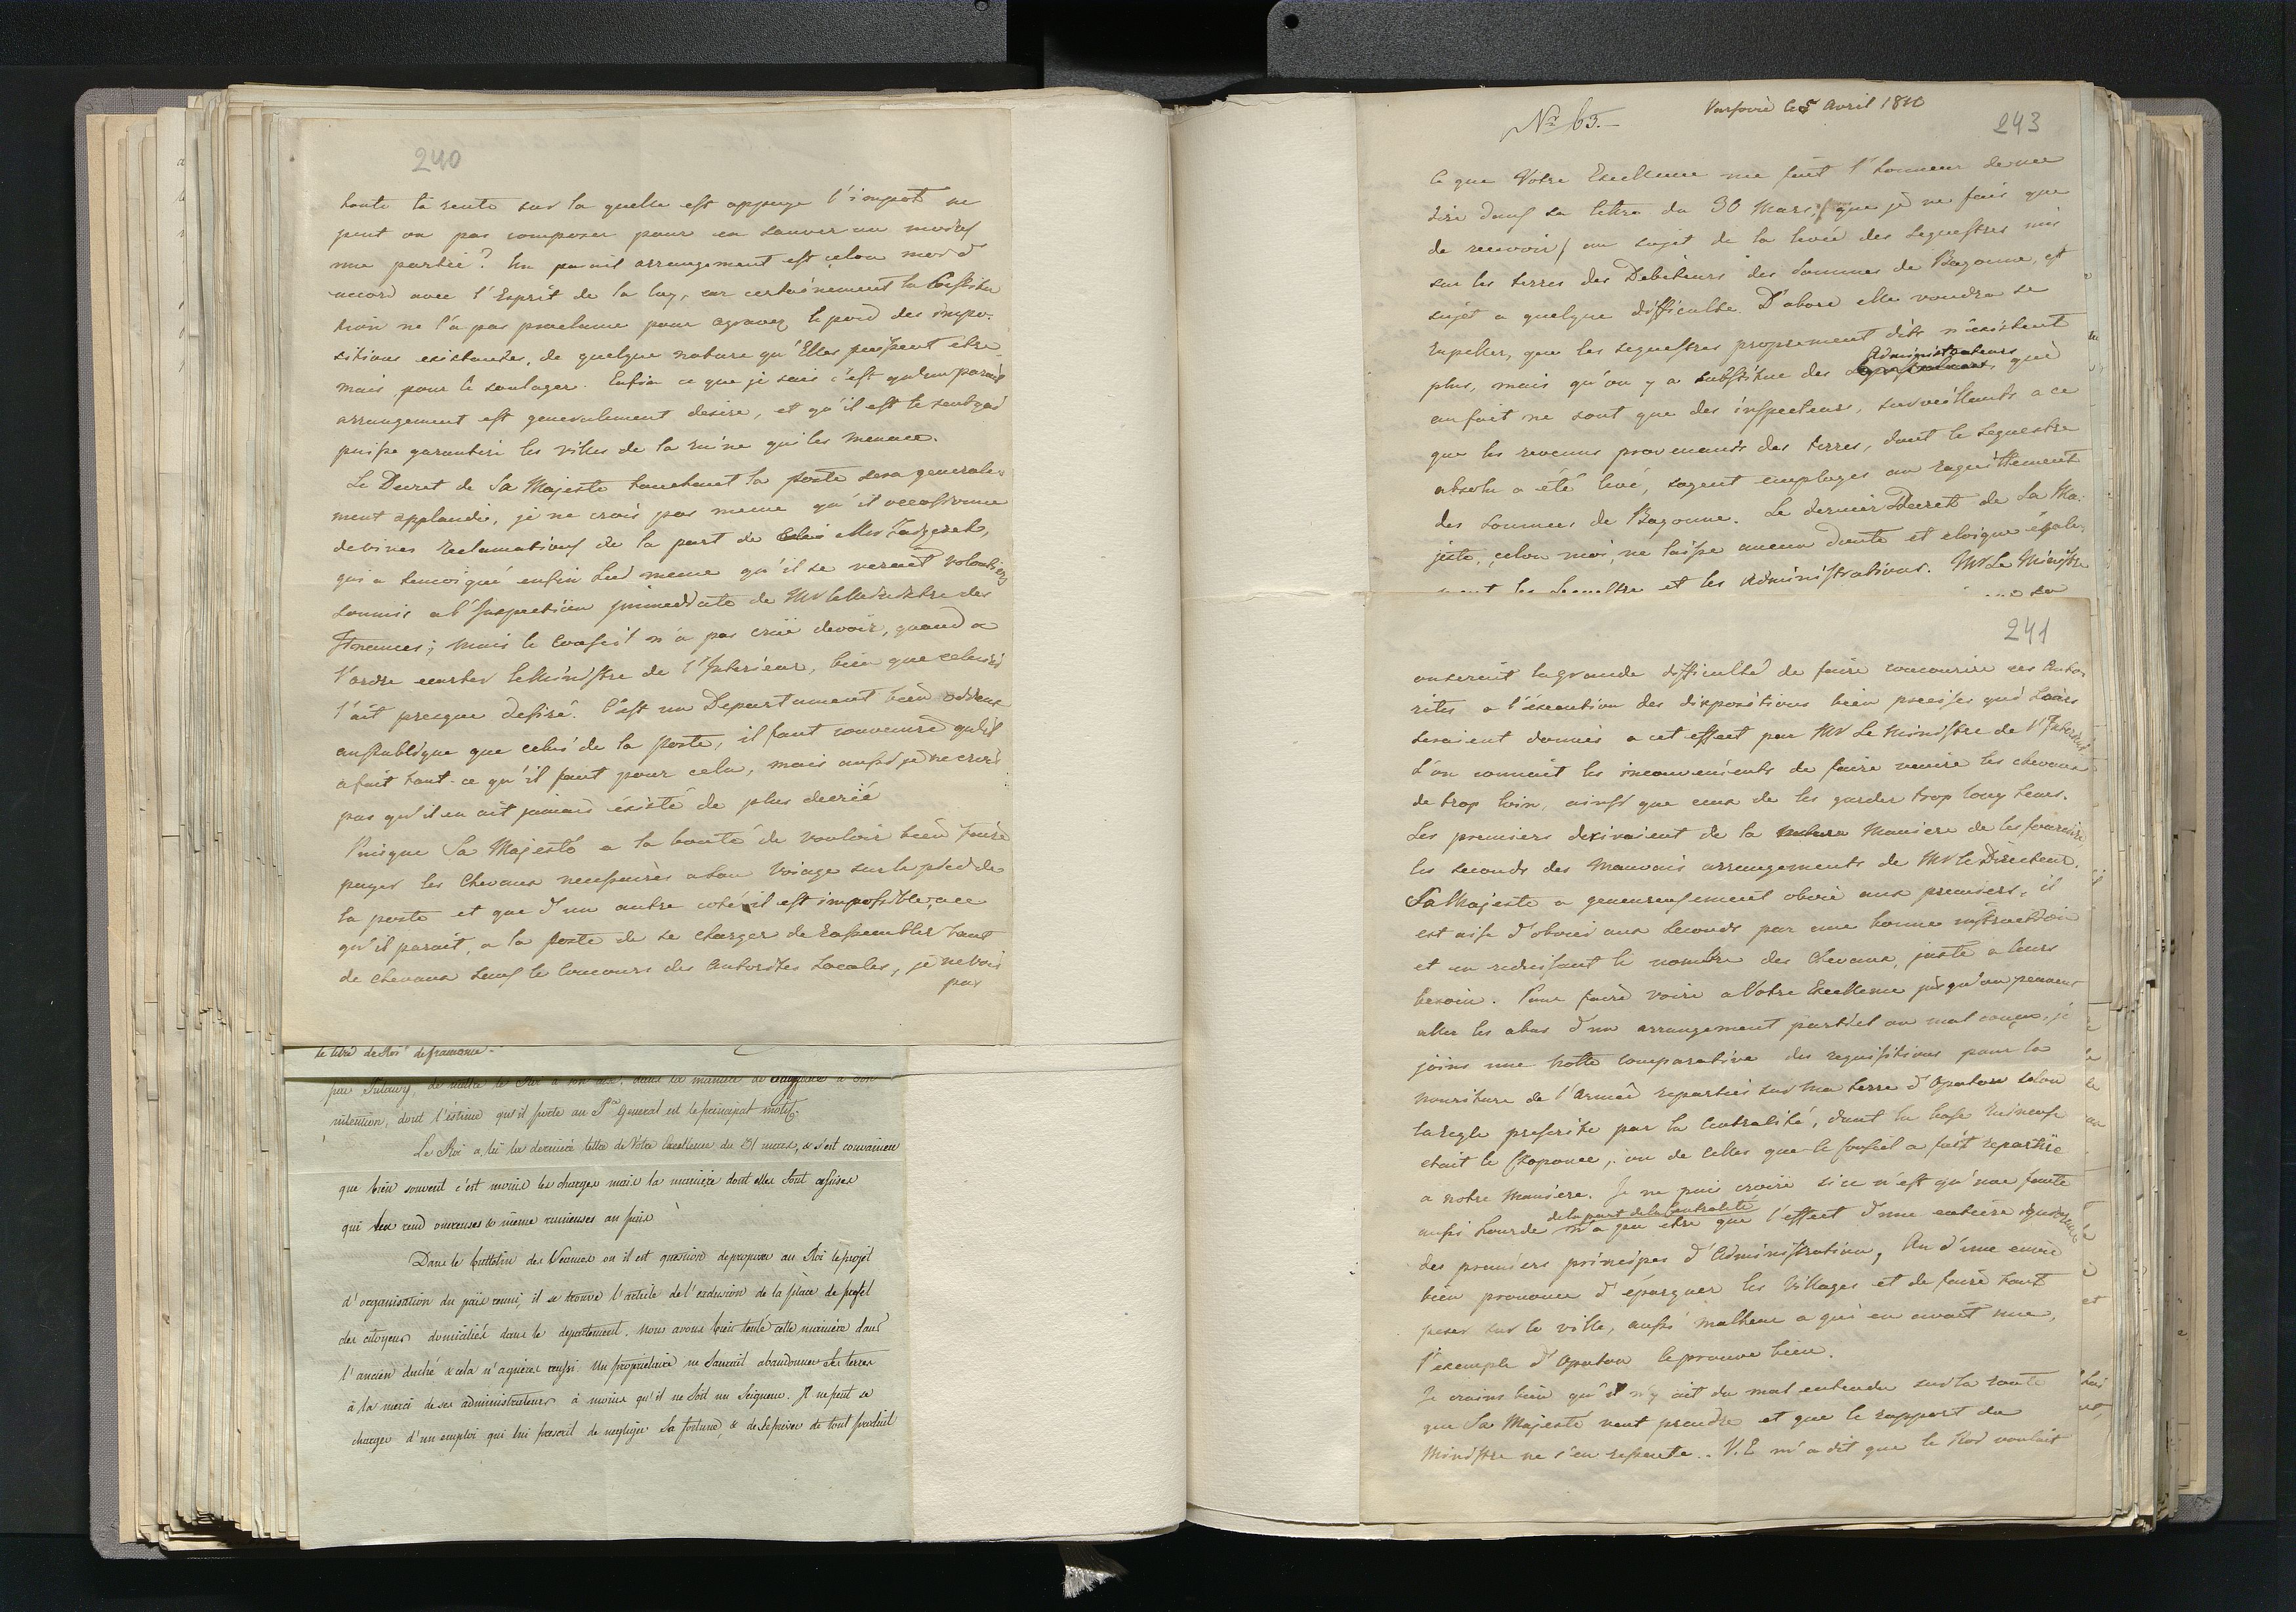 240
toute la rente sur la quelle est appuyé l'impot ne
peut on pas composer pour en sauver au moins
une partie? Un pareil arrangement est selon moi d
accord avec l'Esprit de la loy, car certainement la Constitu
tion ne l'a pas proclamé pour agraver le poid des impo-
sitions existantes, de quelque nature qu'Elles puissent etre
mais pour le soulager. Enfin ce que je sais c'est qu'un pareil
arrangement est generalement desiré, et qu'il est le seul qui
puisse garantire les villes de la ruine qui les menace.
Le Decret de Sa Majesté touchant la poste sera generale-
ment applaudi, je ne crois pas meme qu'il occassionne
de vives reclamations de la part de Mr Zaygeret,
qui a temoigné enfin lui meme qu'il se verrait volontiers
soumis a l'Inspection immediate de Mr le Ministre des
Finances; mais le Conseil n'a pas crüe devoir, quand a
l'ordre ecarter le Ministre de l'Interieur, bien que celui-ci
l'ait presque desiré. C'est un Departament bien odieux
au publique que celui de la poste, il faut convenire qu'il
a fait tout ce qu'il faut pour cela, mais aussi je ne crois
pas qu'il en ait jamais éxisté de plus decrié
Puisque Sa Majesté a la bonté de vouloir bien faire
payer les Chevaux necessaires a son Voiage sur le pied de
la poste et que d'un autre coté il est impossible, a ce
qu'il parait, a la poste de se charger de rassembler tant
de chevaux sans le concours des Autorités Locales, je ne vois
pas
le titre de Roi
par Pulawy, de
intention, dont l'éstime qu'il porte au Pce General est le principal motif.
Le Roi a lû la derniere lettre de Votre Excellence du 31 mars, & s'est convaincu
que bien souvent c'est moins les charges mais la maniére dont elles sont assises
qui les rend onereuses & même ruineuses au païs
Dans le bulletin des Séances ou il est question de proposer au Roi le projet
d'organisation du païs reuni, il se trouve l'article de l'exclusion de la place de prefet
des citoyens domiciliés dans le departement. nous avons bien tenté cette maniére dans
l'ancien duché & cela n'a guères reussi. Un proprietaire ne sauroit abandonner ses terres
à la merci de ses administrateurs à moins qu'il ne soit un Seigneur. Il ne peut se
charger d'un emploi qui lui prescrit de negliger sa fortune, & de se priver de tout produit
No 63.
Varsovie le 5 Avril 1810
243
Ce que Votre Excellence me fait l'honneur de me
dire dans sa lettre du 30 Mars, (que je ne fais que
de recevoir) au sujet de la levée des sequestres mis
sur les terres des Debiteurs des sommes de Bayonne, est
sujet a quelque difficulté. D'abord elle voudra se
rapeller, que les sequestres proprement dits n'existent
plus, mais qu'on y a substitué des Administrateurs, qui
au fait ne sont que des inspecteurs, surveillants a ce
que les revenus provenants des terres, dont le sequestre
absolu a été levé, soyent employés au raquittement
des Sommes de Bayonne. Le dernier Decret de Sa Ma-
jesté, selon moi, ne laisse aucun doute et eloigne égale-
ment les sequestre et les Administrations. Mr Le Ministre
241
on serait la grande difficulté de faire concourire ces Auto-
rités a l'éxecution des dispositions bien precises qui Leurs
seraient donnés a cet effect par Mr Le Ministre de l'Interieur
L'on connait les inconvenients de faire venire les chevaux
de trop loin, ainsi que ceux de les garder trop long tems.
Les premiers derivaient de la Maniere de les fournire,
les seconds des mauvais arrangements de Mr le Directeur.
Sa Majesté a genereusement obvié aux premiers, il
est aisé d'obvier aux seconds par une bonne instruction
et en reduisant le nombre des Chevaux, juste a leurs
besoin. Pour faire voire a Votre Excellence jusqu'ou peuvent
aller les abus d'un arrangement partiel ou mal conçu, je
joins une notte comparative des requisitions pour la
nouriture de l'Armée reparties sur ma terre d'Opatow selon
la regle prescrite par la Centralité, dont la base ruineuse
etait le Skoponce, ou de celles que le Conseil a fait repartire
a notre maniere. Je ne puis croire si ce n'est qu'une faute
de la part de la Centralité
aussi lourde n'a pu etre que l'effect d'une entiere ignorance
des premiers principes d'Administration, ou d'une envie
bien prononcé d'épargner les Villages et de faire tout
peser sur la ville, aussi malheur a qui en avait une,
l'exemple d'Opatow le prouve bien.
Je crains bien qu'il n'y ait du mal entendu sur la route
que Sa Majesté veut prendre et que le rapport du
Ministre ne s'en ressente. V.E m'a dit que le Roi voulait